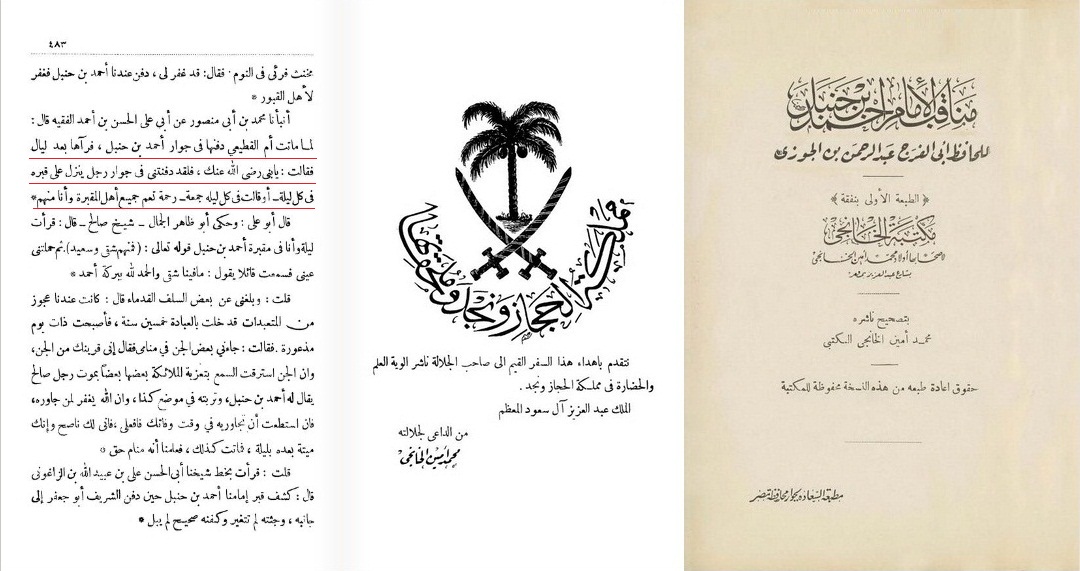 ٤٨٣
مخنث فرئى فى النوم . فقال : قد غفر لى ، دفن عندنا أحمد بن حنبل فغفر
لأهل القبور *
أنبأنا محمد بن أبى منصور عن أبى على الحسن بن أحمد الفقيه قال :
لما ماتت أم القطيعى دفنها فى جوار أحمد بن حنبل ، فرآها بعد ليال
فقالت : يابنى رضى الله عنك ، فلقد دفنتنى فى جوار رجل ينزل على قبره
فى كل ليلة ـ أو قالت فى كل ليله جمعة ـ رحمة تعم جميع أهل المقبرة وأنا منهم *
قال أبو على : وحكى أبو طاهر الجمال ـ شيخ صالح ـ قال : قرأت
ليلة وأنا فى مقبرة أحمد بن حنبل قوله تعالى : ( فمنهم شقى وسعيد ) ثم حملتنى
عينى فسمعت قائلا يقول : مافينا شقى والحمد لله ببركة أحمد *
قلت : وبلغنى عن بعض السلف القدماء قال : كانت عندنا عجوز
من المتعبدات قد خلت بالعبادة خمسين سنة ، فأصبحت ذات يوم
مذعورة . فقالت : جاءنى بعض الجن فى منامى فقال إنى قرينك من الجن ،
وان الجن استرقت السمع بتعزية الملائكة بعضها بعضاً بموت رجل صالح
يقال له أحمد بن حنبل ، وتربته فى موضع كذا ، وان الله يغفر لمن جاوره ،
فان استطعت أن تجاوريه فى وقت وفاتك فافعلى ، فانى لك ناصح وإنك
ميتة بعده بليلة ، فماتت كذلك ، فعلمنا أنه منام حق *
قلت : قرأت بخط شيخنا أبى الحسن على بن عبيد الله بن الزاغونى
قال : كشف قبر إمامنا أحمد بن حنبل حين دفن الشريف أبو جعفر إلى
جانبه ، وجثته لم تتغير وكفنه صحيح لم يبل *
مملكة الحجاز ونجد وملحقاتها
نتقدم باهداء هذا السفر القيم الى صاحب الجلالة ناشر الوية العلم
والحضارة فى مملكة الحجاز ونجد .
الملك عبد العزيز آل سعود المعظم
من الداعى لجلالته
محمد أمين الخانجى
مناقب الإمام أحمد بن حنبل
للحافظ أبى الفرج عبد الرحمن بن الجوزى
﴿ الطبعة الأولى بنفقة ﴾
مكتبة الخانجى
لأصحابها أولاد محمد أمين الخانجى
بشارع عبد العزيز بمصر
بتصحيح ناشره
محمد أمين الخانجى الكتبى
حقوق اعادة طبعه من هذه النسخة محفوظة للمكتبة
مطبعة السعاده بجوار محافظة مصر